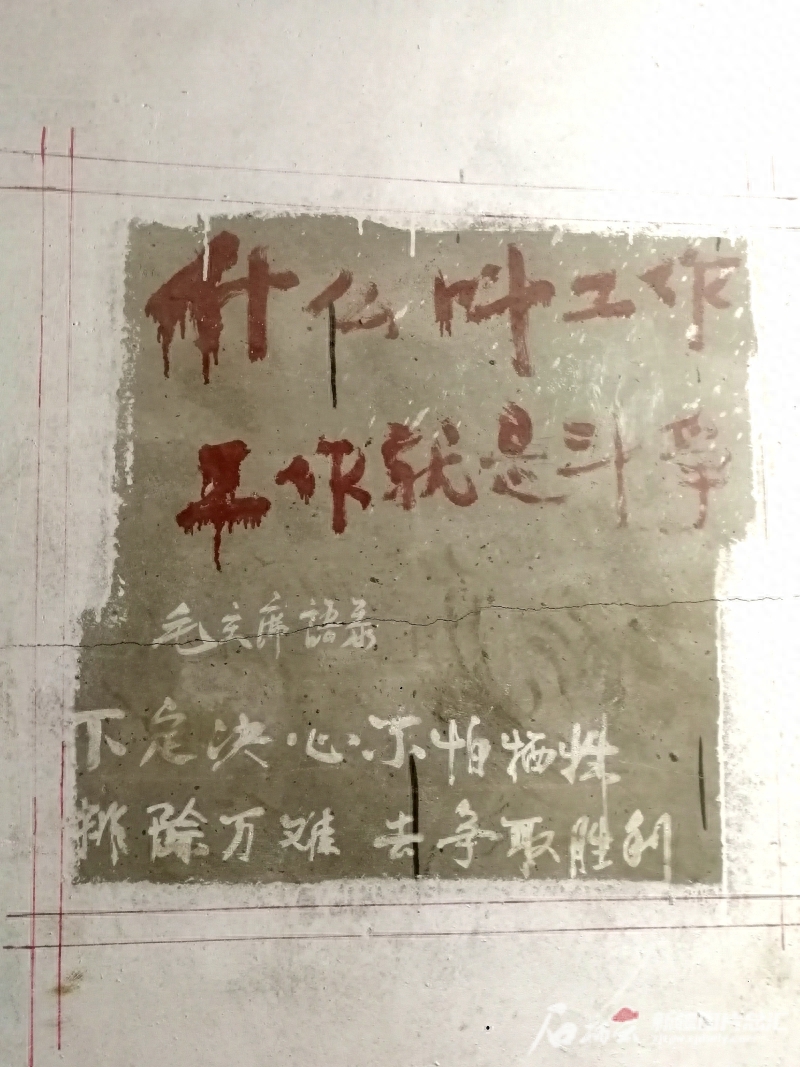 什么叫工作
工作就是斗争
毛主席語录
下定决心 不怕牺牲
排除万难 去争取胜利